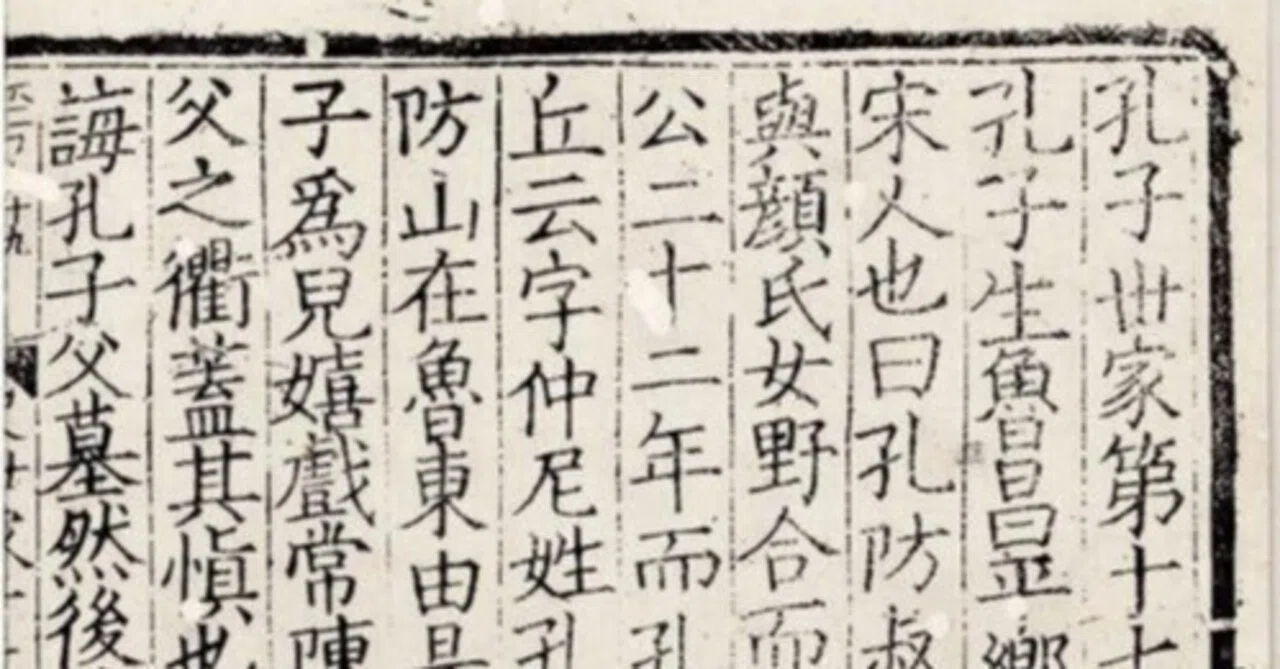 孔子世家第十七
孔子生魯昌平鄉
宋人也曰孔防叔
與顔氏女野合而
公二十二年而孔
丘云字仲尼姓孔
防山在魯東由是
子爲兒嬉戲常陳
父之衢蓋其慎也
誨孔子父墓然後